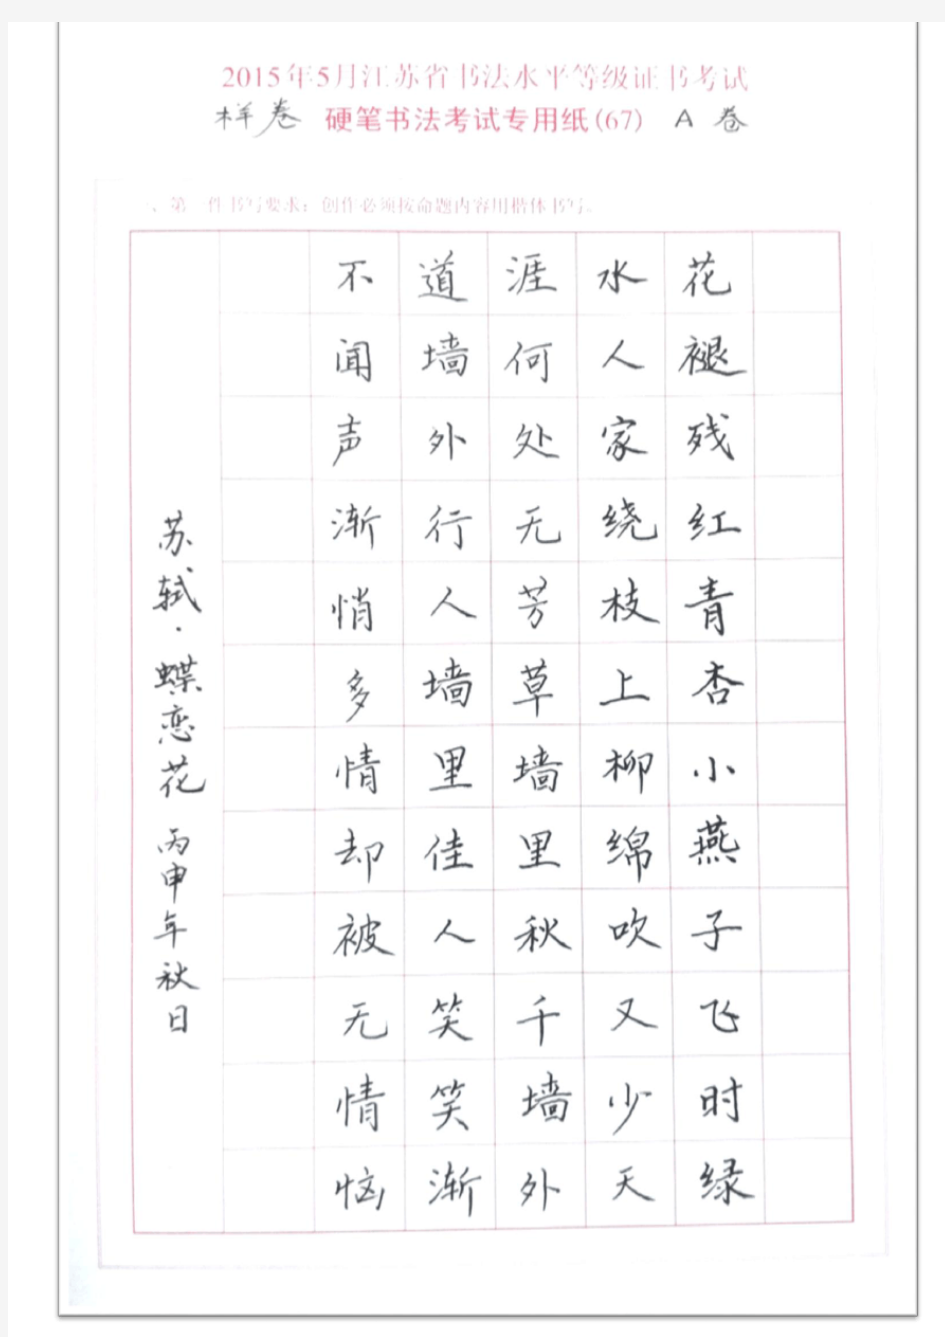 2015年5月江苏省书法水平等级证书考试
样卷 硬笔书法考试专用纸(67) A 卷
一、第一件书写要求：创作必须按命题内容用楷体书写。
花褪残红青杏小燕子飞时绿
水人家绕枝上柳绵吹又少天
涯何处无芳草墙里秋千墙外
道墙外行人墙里佳人笑笑渐
不闻声渐悄多情却被无情恼
苏轼·蝶恋花 丙申年秋日